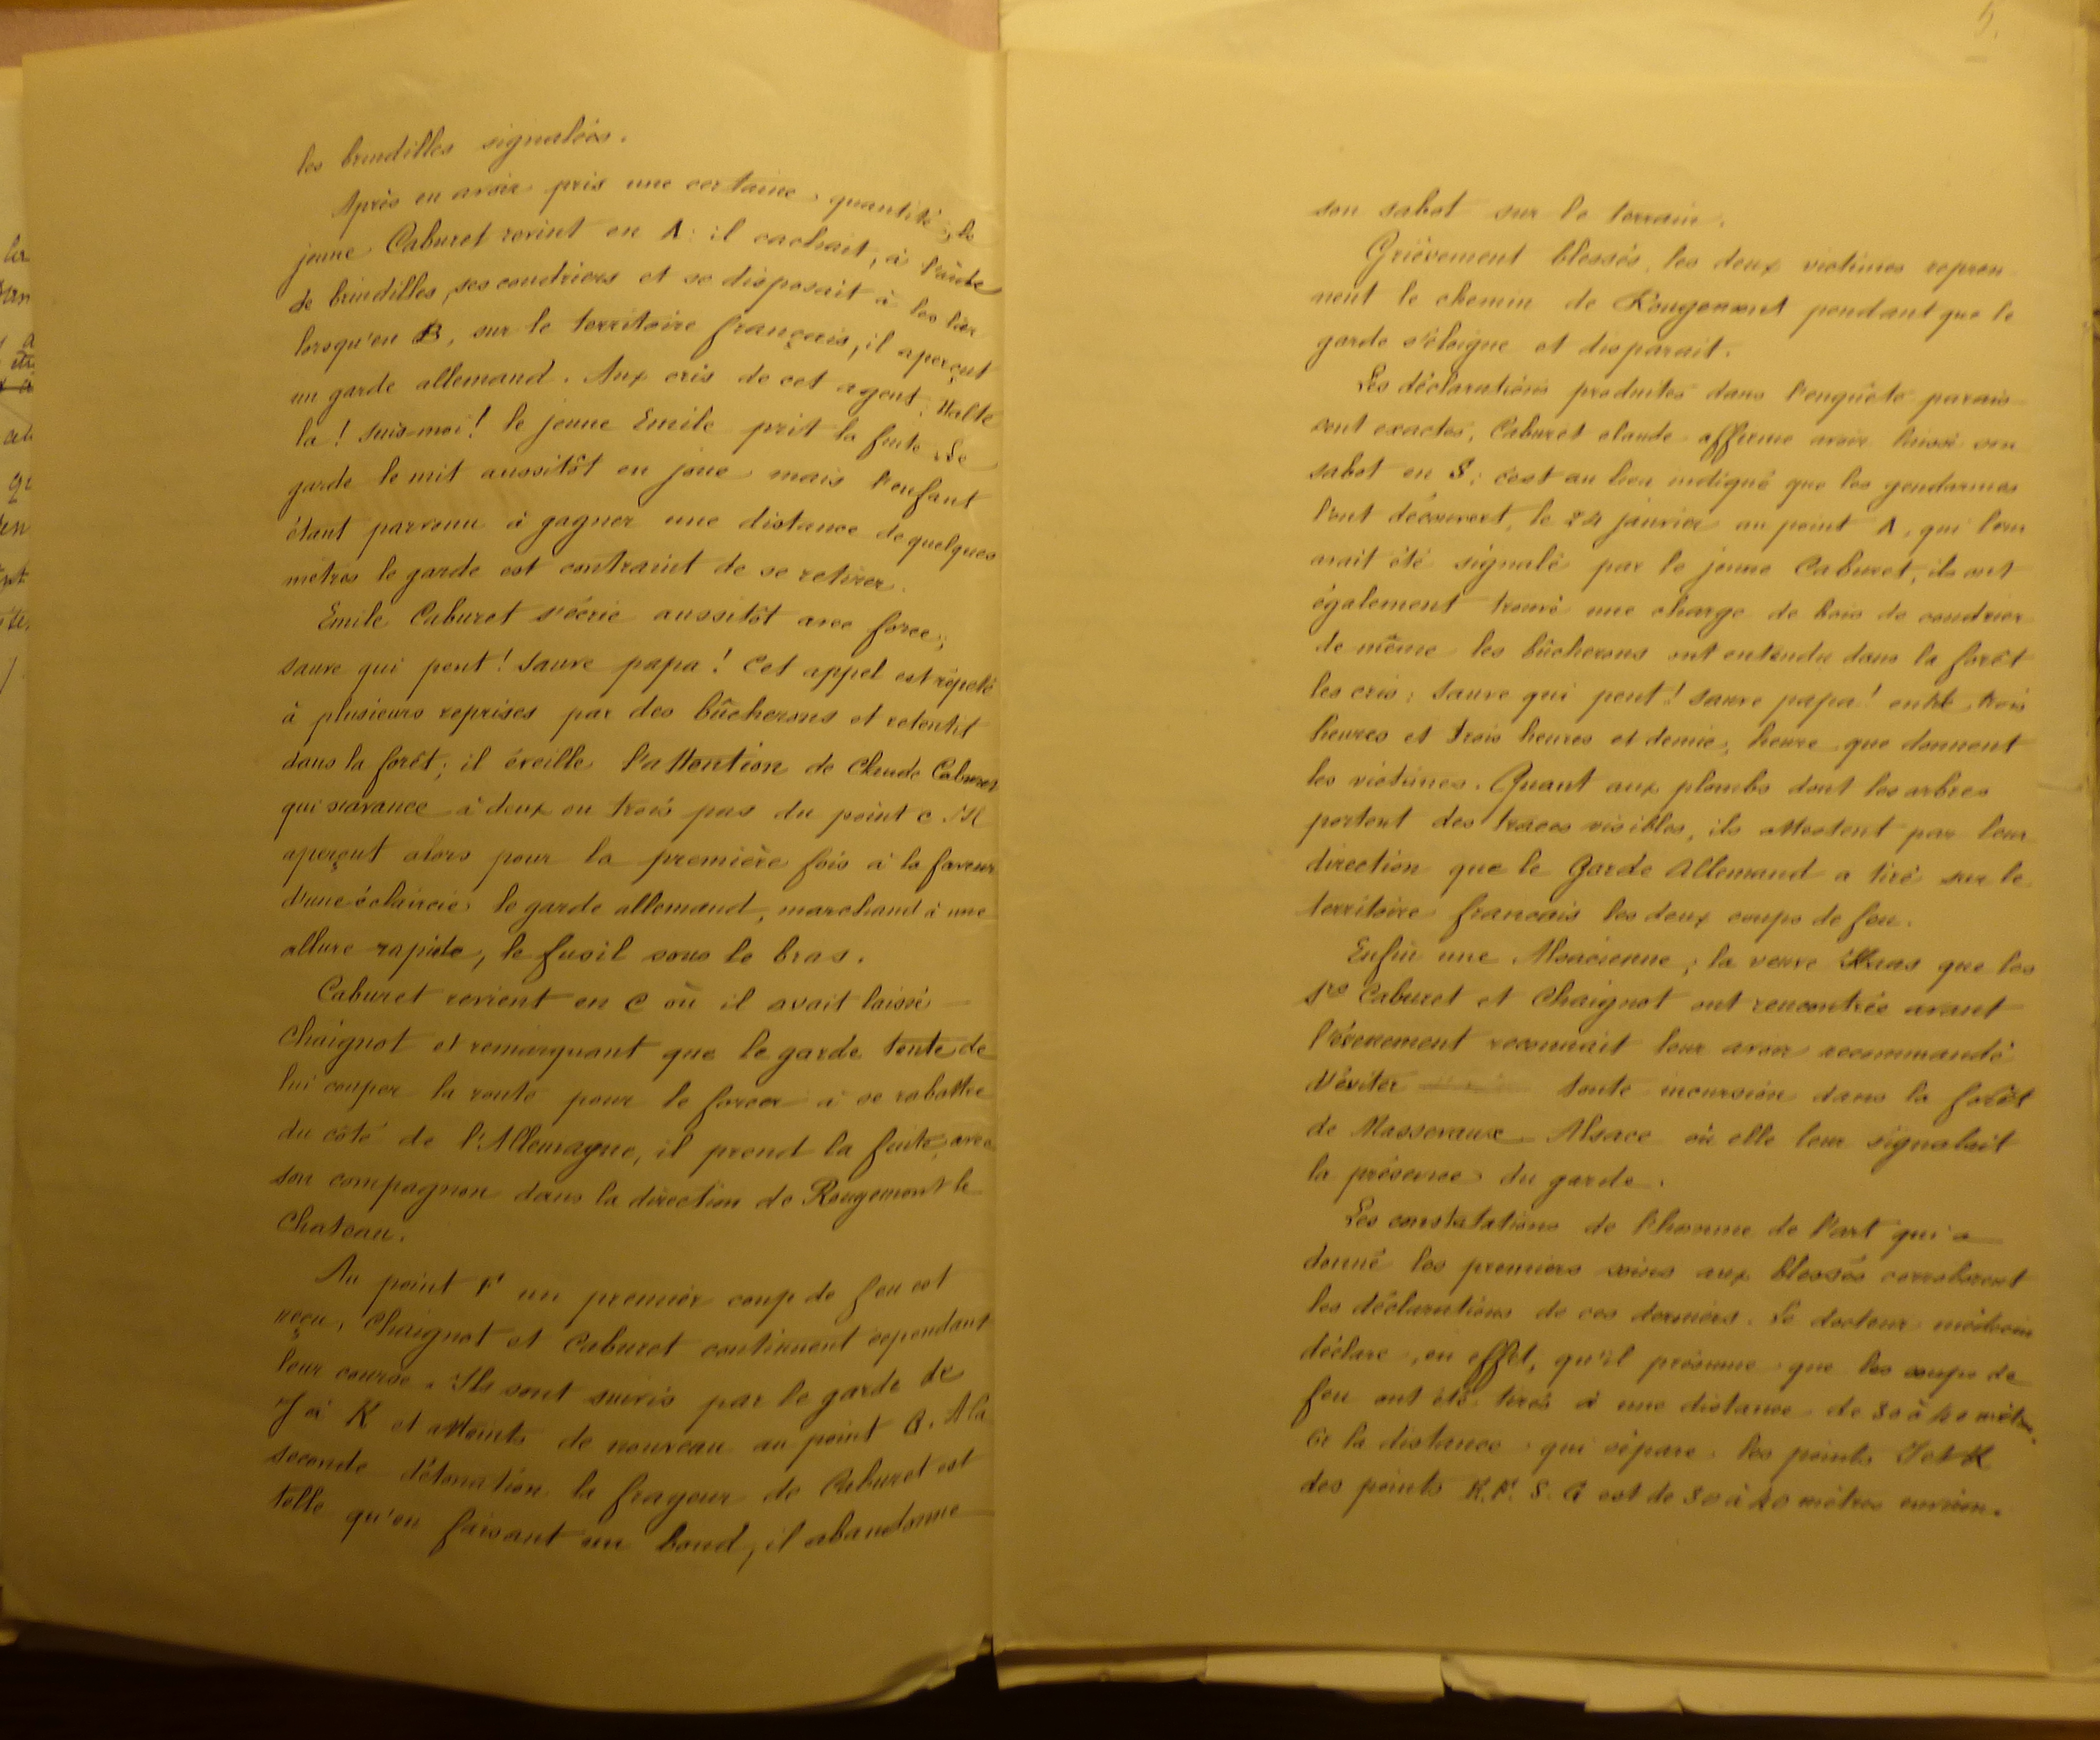 les brindilles signalées.
Après en avoir pris une certaine quantité, le
jeune Caburet revint en A: il cachait, à l'aide
de brindilles, ses coudriers et se disposait à les lier
lorsqu'en B, sur le territoire français, il aperçut
un garde allemand. Aux cris de cet agent: Halte
la! suis-moi! le jeune Emile prit la fuite. Le
garde le mit aussitôt en joue mais l'enfant
étant parvenu à gagner une distance de quelques
mètres le garde est contraint de se retirer.
Emile Caburet s'écrie aussitôt avec force:
sauve qui peut! sauve papa! Cet appel est répété
à plusieurs reprises par des bûcherons et retentit
dans la forêt; il éveille l'attention de Claude Caburet
qui s'avance à deux ou trois pas du point C. Il
aperçut alors pour la première fois à la faveur
d'une éclaircie le garde allemand, marchand à une
allure rapide, le fusil sous le bras.
Caburet revient en C où il avait laissé
Chaignot et remarquant que le garde tente de
lui couper la route pour le forcer à se rabattre
du côté de l'Allemagne, il prend la fuite avec
son compagnon dans la direction de Rougemont le
Chateau.
Au point F un premier coup de feu est
reçu, Chaignot et Caburet continuent cependant
leur course. Ils sont suivis par le garde de
J à K et atteints de nouveau au point G. A la
seconde détonation la frayeur de Caburet est
telle qu'en faisant un bond, il abandonne
5.
son sabot sur le terrain.
Grièvement blessés, les deux victimes repren
nent le chemin de Rougemont pendant que le
garde s'éloigne et disparait.
Les déclarations produites dans l'enquête parais
sent exactes, Caburet Claude affirme avoir laissé son
sabot en S; c'est au lieu indiqué que les gendarmes
l'ont découvert, le 24 janvier au point A, qui leur
avait été signalé par le jeune Caburet, ils ont
également trouvé une charge de bois de coudrier
de même les bûcherons ont entendu dans la forêt
les cris: sauve qui peut! sauve papa! entre trois
heures et trois heures et demie, heure que donnent
les victimes. Quant aux plombs dont les arbres
portent des traces visibles, ils attestent par leur
direction que le Garde Allemand a tiré sur le
territoire français les deux coups de feu.
Enfin une Alsacienne, la veuve Haas que les
Srs Caburet et Chaignot ont rencontrée avant
l'évenement reconnait leur avoir recommandé
d'éviter toute incursion dans la forêt
de Massevaux Alsace où elle leur signalait
la présence du garde.
Les constatations de l'homme de l'art qui a
donné les premiers soins aux blessés corroborent
les déclarations de ces derniers. Le docteur médecin
déclare, en effet, qu'il présume que les coups de
feu ont été tirés à une distance de 30 à 40 mètres.
Or la distance qui sépare les points J et K
des points F. S. G est de 30 à 40 mètres environ.